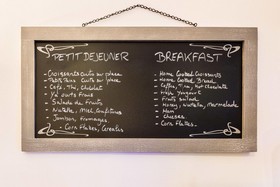 PETIT DEJEUNER
- Croissants cuits sur place
- Petits Pains cuits sur place
- Café, Thé, Chocolat
- Salade de fruits
- Nutella, Miel, Confitures
- Jambon, fromages
- Corn Flakes, Cereales
BREAKFAST
- Home Cooked Croissants
- Home Cooked Bread
- Coffee, Tea, Hot Chocolate
- Fruits salade
- Honey, Nutella, Marmelade
- Ham
- Cheeses
- Corn Flakes